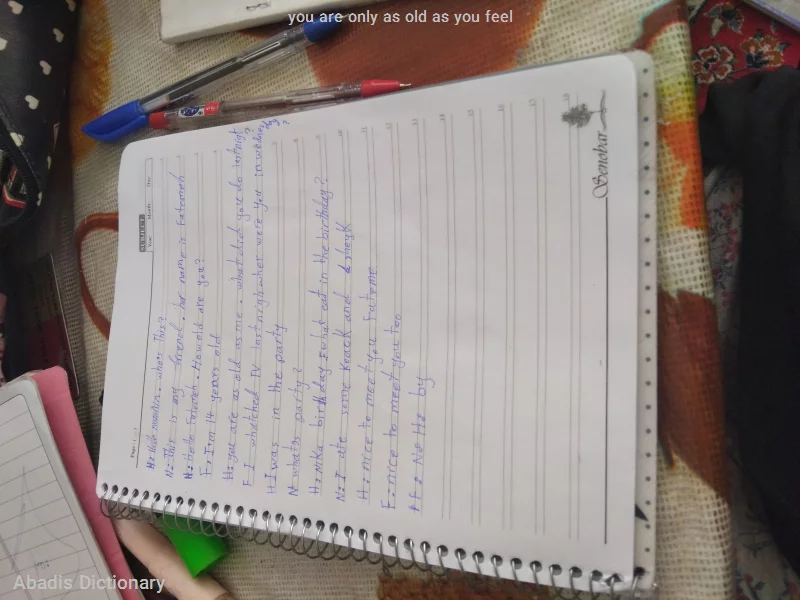 you are only as old as you feel
SUBJECT
Year Month Day
Page
H: Hello . who's This?
N: This is my friend. her name is Fatemeh
H: Hello Fatemeh. How old are you?
F: I'm 14 years old
H: you are as old as me. what did you do lastnight?
F I whatched TV lastnigh wher were you in
H I was in the party
N whats party?
H: Mika birthday what eat in the birthday?
N: I ate some and
H: nice to meet you Fateme
F: nice to meet you too
HF: No Ho by
Senobar
Abadis Dictionary